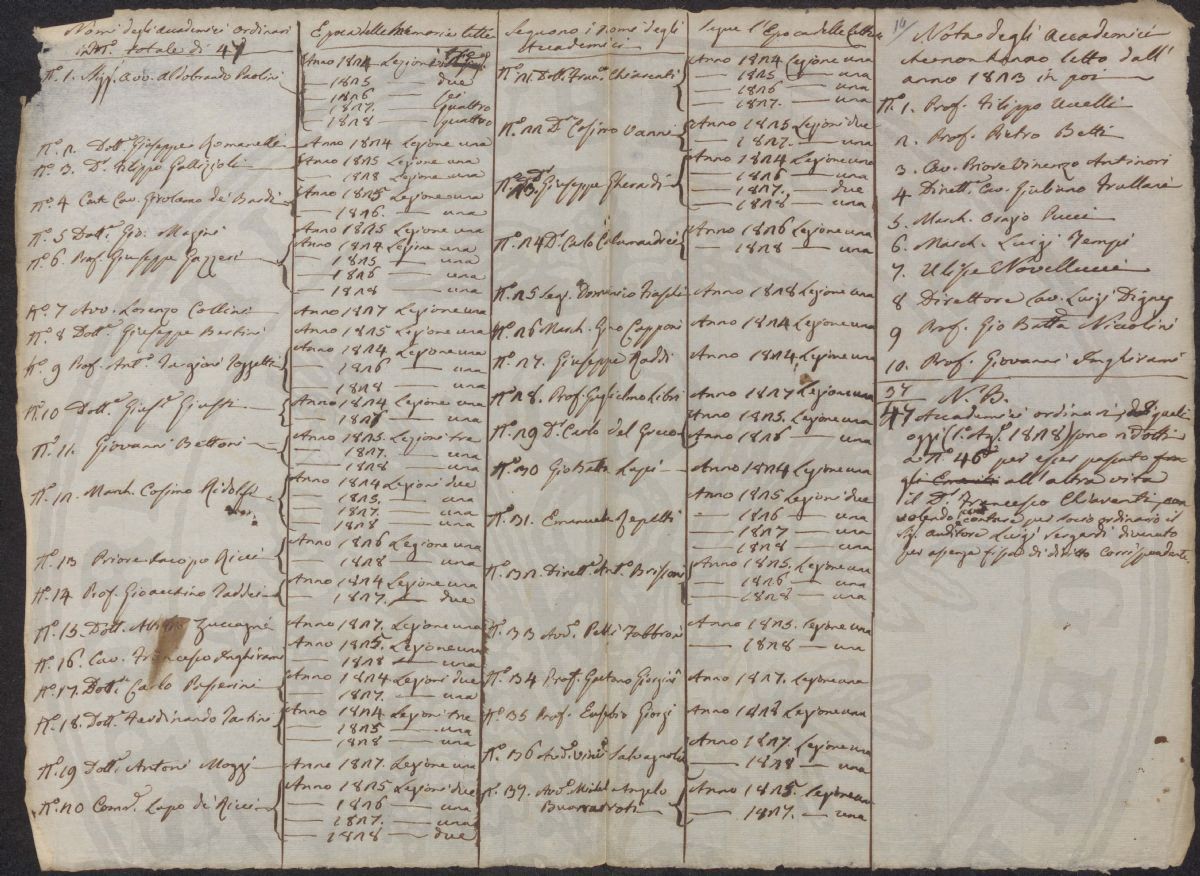 Nomi degli accademici ordinari
in N.º totale di 47
N.º 1. Sig.r Avv. Aldobrando Paolini
N.º 2. Dott. Giuseppe Romanelli
N.º 3. D.r Filippo Gallizioli
N.º 4 Cav. Girolamo de' Bardi
N.º 5 Dott.r Gio. Magini
N.º 6. Prof. Giuseppe Gazzeri
N.º 7 Avv. Lorenzo Collini
N.º 8 Dott.r Giuseppe Bertini
N.º 9 Prof. Ant.º Targioni Tozzetti
N.º 10 Dott.r Gius.e Giusti
N.º 11. Giovanni Bettoni
N.º 12. March. Cosimo Ridolfi
N.º 13 Priore Iacopo Ricci
N.º 14 Prof. Gioacchino Taddei
N.º 15. Dott. Zuccagni
N.º 16. Cav. Francesco Inghirami
N.º 17. Dott.r Carlo Passerini
N.º 18. Dott.r Ferdinando Tartini
N.º 19 Dott.r Antonio Mazzi
N.º 20 Com.r Lapo de' Ricci
Epoca delle Memorie lette
Anno 1824 Lezioni tre
— 1825 — due
— 1826 — sei
— 1827. — quattro
— 1828 — quattro
Anno 1824 Lezione una
Anno 1825 Lezione una
— 1828 Lezione una
Anno 1825 Lezione una
— 1826. — una
Anno 1825 Lezione una
Anno 1824 Lezione una
— 1825 — una
— 1826 — una
— 1828 — una
Anno 1827 Lezione una
Anno 1825 Lezione una
Anno 1824. Lezione una
— 1826 — una
— 1828 — una
Anno 1824 Lezione una
— 1826 — una
Anno 1825. Lezioni tre
— 1827. — una
— 1828 — una
Anno 1824 Lezioni due
— 1825. — una
— 1827 — una
— 1828 — una
Anno 1826 Lezione una
— 1828 — una
Anno 1824 Lezione una
— 1827. — due
Anno 1827. Lezione una
Anno 1825. Lezione una
— 1828 — una
Anno 1824 Lezioni due
— 1827. — una
Anno 1824 Lezioni tre
— 1825 — una
— 1828 — una
Anno 1827. Lezione una
Anno 1825 Lezioni due
— 1826 — una
— 1827. — una
— 1828 — due
Seguono i nomi degli
Accademici
N.º 21. Dott. Fran.co Chiarenti
N.º 22 D.r Cosimo Vanni
N.º 23. D.r Giuseppe Gherardi
N.º 24 D.r Carlo
N.º 25 Seg. Domenico
N.º 26 March. Gino Capponi
N.º 27. Giuseppe Raddi
N.º 28. Prof. Guglielmo Libri
N.º 29 D.r Carlo del Greco
N.º 30 Gio Batta Lapi
N.º 31. Emanuele Repetti
N.º 32. Dirett. Ant.º
N.º 33 Avv. Pelli Fabbroni
N.º 34 Prof. Gaetano Giorgini
N.º 35 Prof. Eusebio Giorgi
N.º 36 Avv. Vinc.º Salvagnoli
N.º 37. Avv. Michel Angelo
Buonarroti
Segue l'Epoca delle Letture
Anno 1824 Lezione una
— 1825 — una
— 1826 — una
— 1827. — una
Anno 1825 Lezioni due
— 1827. — una
Anno 1824 Lezione una
— 1826 — una
— 1827. — due
— 1828 — una
Anno 1826 Lezione una
— 1828 — una
Anno 1828 Lezione una
Anno 1824 Lezione una
Anno 1824 Lezione una
Anno 1827 Lezione una
Anno 1825. Lezione una
Anno 1826 — una
Anno 1824 Lezione una
Anno 1825 Lezioni due
— 1826 — una
— 1827 — una
— 1828 — una
Anno 1825. Lezione una
— 1826 — una
— 1828 — una
Anno 1825. Lezione una
— 1828 — una
Anno 1827. Lezione una
Anno 1828 Lezione una
Anno 1827. Lezione una
— 1828 — una
Anno 1825. Lezione una
— 1827. — una
14
Nota degli Accademici
che non hanno letto dall'
anno 1823 in poi
N.º 1. Prof. Filippo Uccelli
2. Prof. Pietro Betti
3. Cav. Priore Vincenzo Antinori
4 Dirett. Cav. Giuliano Frullani
5. March. Orazio Pucci
6. March. Luigi Tempi
7. Ulisse Novellucci
8 Direttore Cav. Luigi Digny
9 Prof. Gio Batta Niccolini
10. Prof. Giovanni Inghirami
37 N. B.
47 Accademici ordinari, dei quali
oggi (1.º Ag. 1828) sono ridotti
a N.º 46 per esser passato fra
gli Emeriti all'altra vita
il D.r Francesco Chiarenti, non
volendo contare per socio ordinario il
Sig. auditore Luigi Sergardi divenuto
per assenza fissa di diritto Corrispondente.